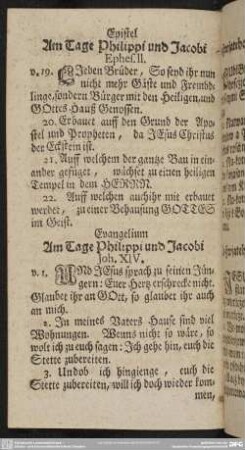 Epistel
Am Tage Philippi und Jacobi
Ephes. II.
v. 19. Lieben Brüder, So seyd ihr nun
nicht mehr Gäste und Frembd-
linge, sondern Bürger mit den Heiligen, und
GOttes Hauß Genossen.
20. Erbauet auff den Grund der Apo-
stel und Propheten, da JEsus Christus
der Eckstein ist.
21. Auff welchem der gantze Bau in ein-
ander gefüget, wächset zu einen heiligen
Tempel in dem HERRN.
22. Auff welchen auch ihr mit erbauet
werdet, zu einer Behausung GOTTES
im Geist.
Evangelium
Am Tage Philippi und Jacobi
Joh. XIV.
v. 1. UNd JEsus sprach zu seinen Jün-
gern: Euer Hertz erschrecke nicht.
Glaubet ihr an GOtt, so glaubet ihr auch
an mich.
2. In meines Vaters Hause sind viel
Wohnungen. Wenns nicht so wäre, so
wolt ich zu euch sagen: Ich gehe hin, euch die
Stette zubereiten.
3. Und ob ich hingienge, euch die
Stette zubereiten, will ich doch wieder kom-
men,